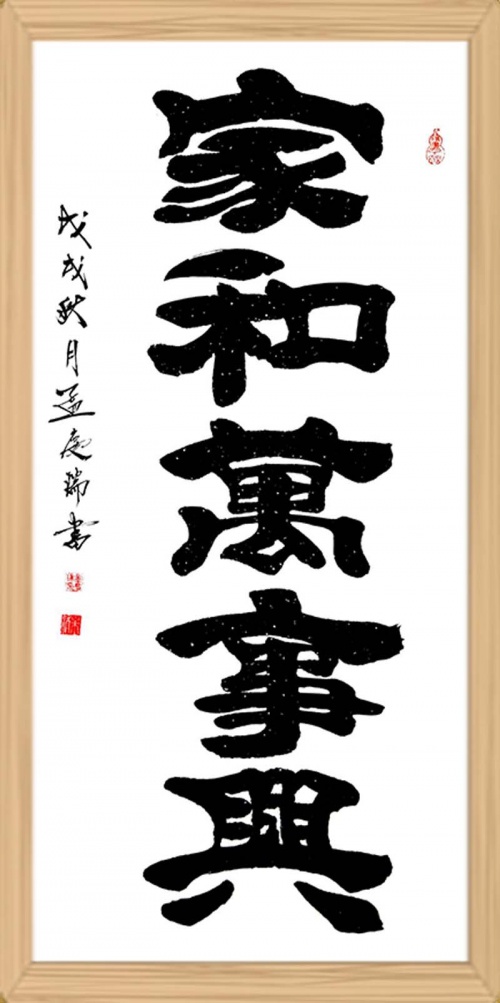 家和萬事興
戊戌秋月孟慶瑞書